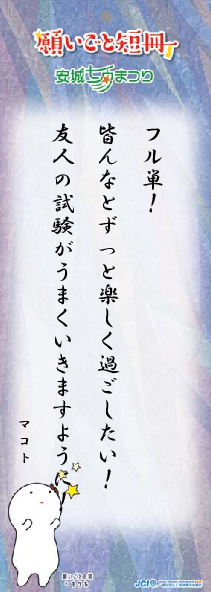 願いごと短冊
安城七夕まつり
フル単!
皆んなとずっと楽しく過ごしたい!
友人の試験がうまくいきますよう
マコト
JCI